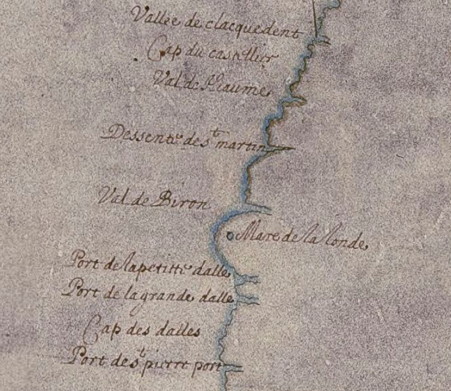 Vallée de clacquedent
Cap du castellier
Val de Reaume
Dessente de st martin
Val de Biron
Mare de la londe
Port de la petitte dalle
Port de la grande dalle
Cap des dalles
Port de st pierre port